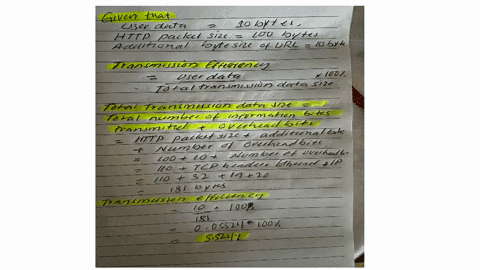 Given that
User data = 10 bytes,
HTTP packet size = 100 bytes
Additional byte size of URL = 10 byte
Transmission Efficiency
= User data × 100%
Total transmission data size
Total Transmission data size =
Total number of information bites
transmitted + overhead bits
= HTTP packet size + additional bits
+ Number of overhead bits
= 100 + 10 + Number of overhead
= 110 + TCP header + Ethernet + IP
= 110 + 32 + 19 + 20
= 181 bytes
Transmission efficiency
= 10 × 100%
181
= 0.05524 * 100%
= 5.524%